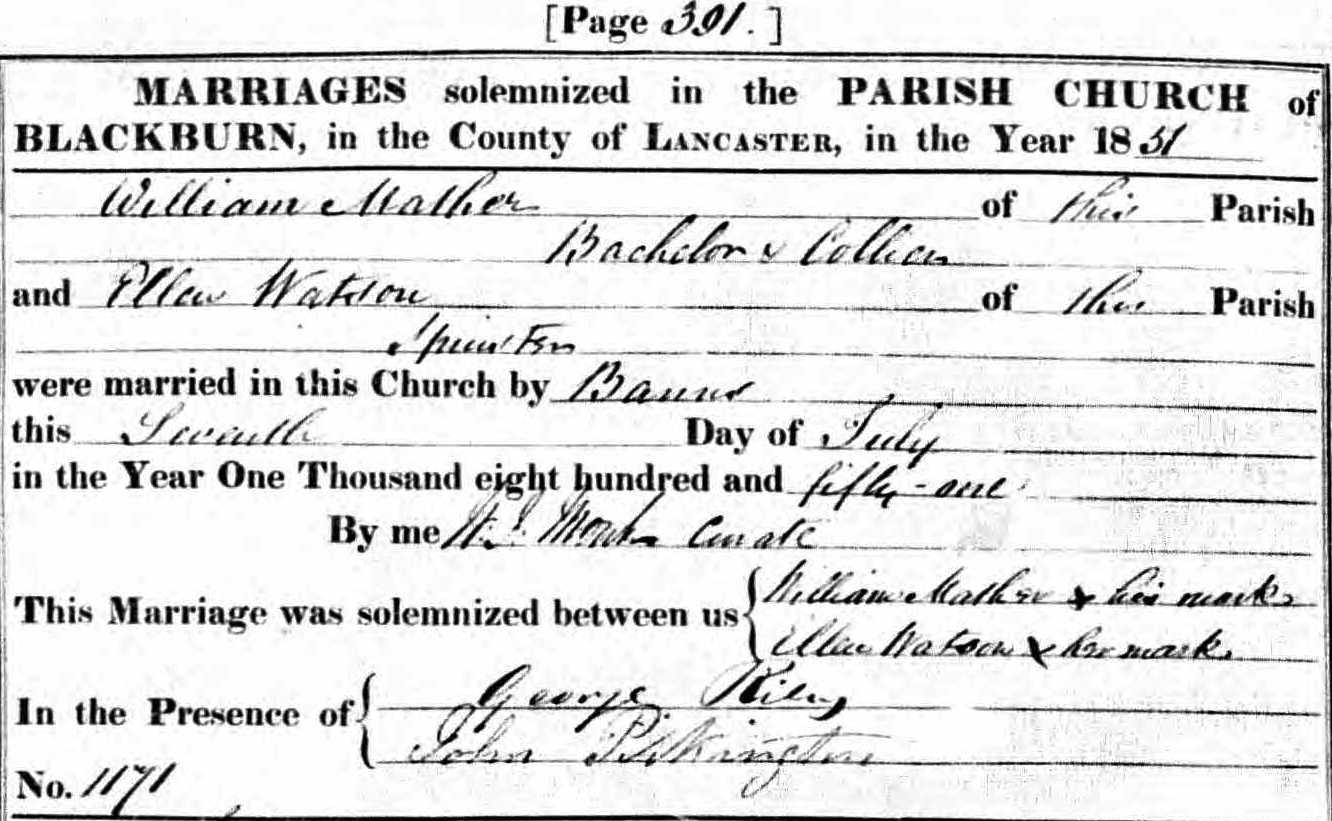 [Page 391.]
MARRIAGES solemnized in the PARISH CHURCH of
BLACKBURN, in the County of LANCASTER, in the Year 1851
William Mather of this Parish
Bachelor & Collier
and Ellen Watson of this Parish
Spinster
were married in this Church by Banns
this Seventh Day of July
in the Year One Thousand eight hundred and fifty-one
By me Monk Curate
This Marriage was solemnized between us { William Mather x his mark
Ellen Watson x her mark
In the Presence of { George Riley
John Pilkington
No. 1171